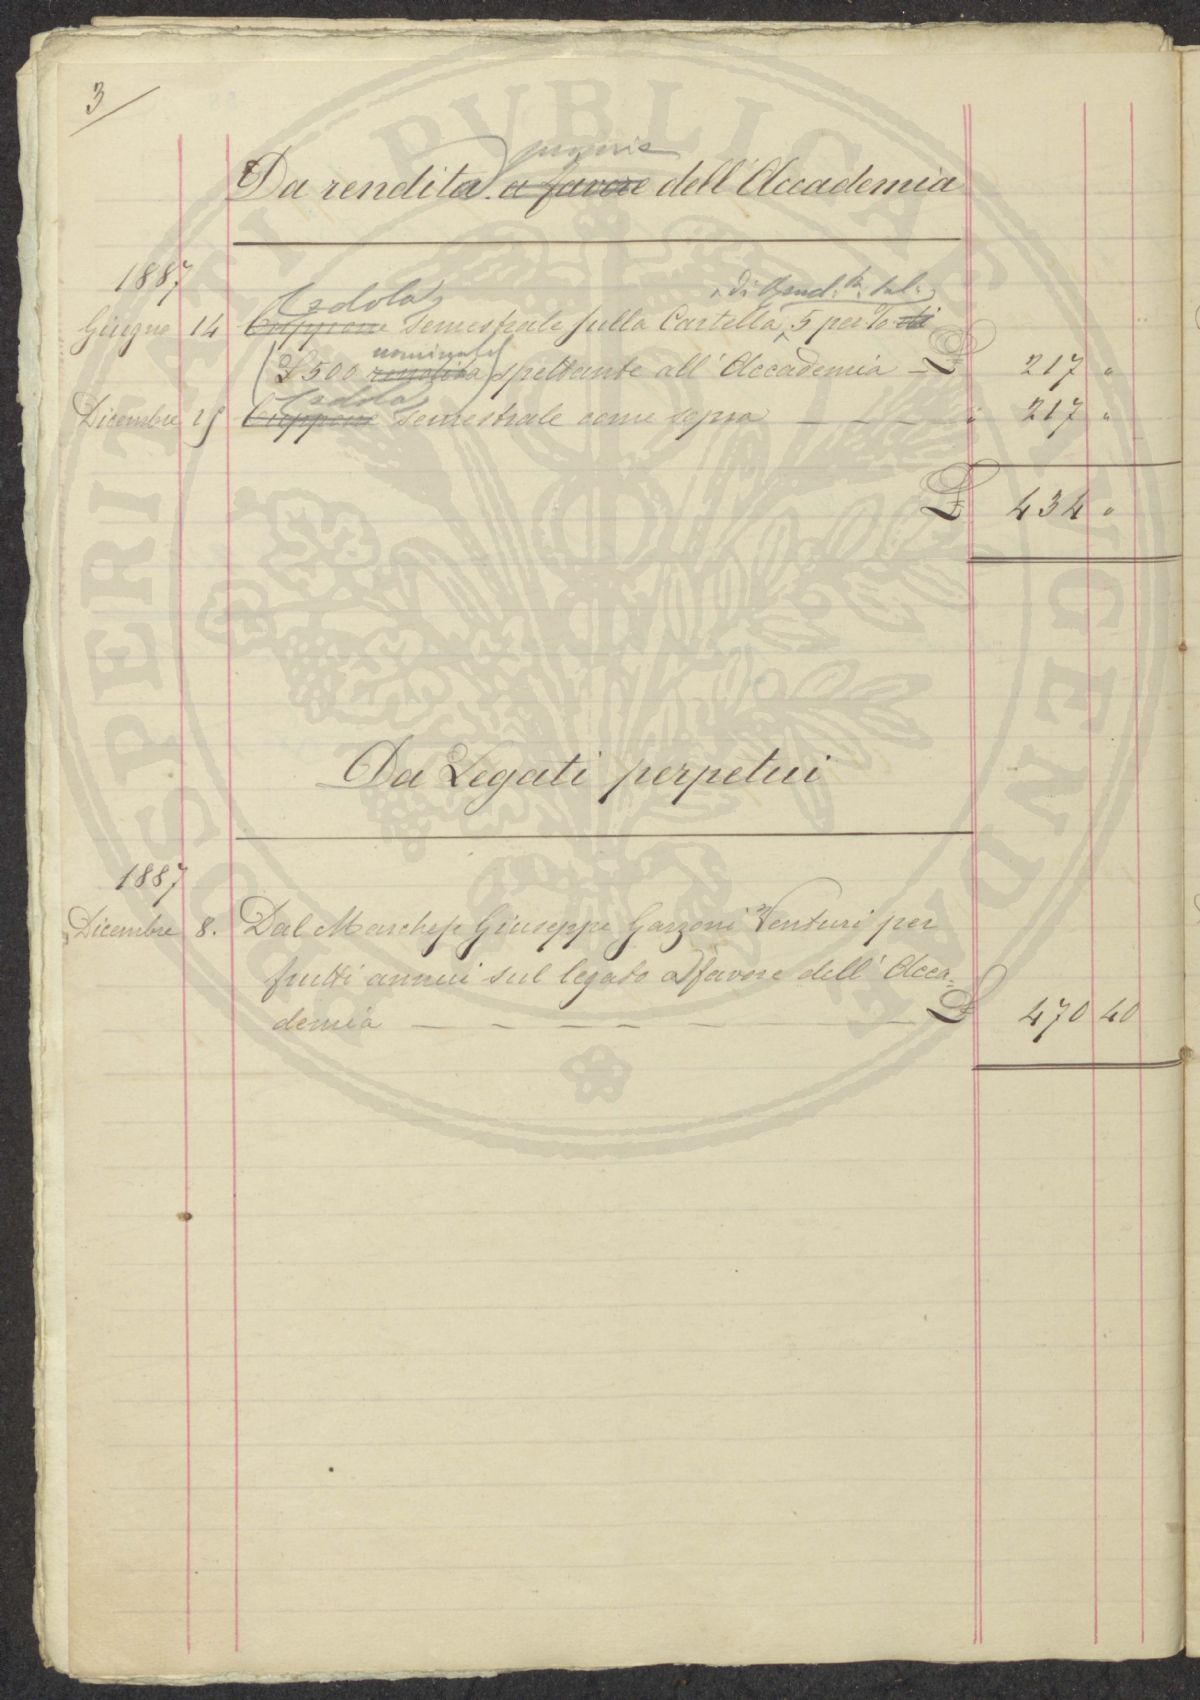 3
propria
Da rendita a favore dell'Accademia
1887
Cedola di Rend. It. Ital.
Giugno 14 Cuppone semestrale sulla Cartella 5 per % di
nominale
£ 500 rendita spettante all'Accademia — £ 217 "
Cedola
Dicembre Cuppone semestrale come sopra — — — — " 217 "
£ 434 "
Da Legati perpetui
1887
Dicembre 8. Dal Marchese Giuseppe Garzoni Venturi per
frutti annui sul legato a favore dell'Acca=
demia — — — — — — — £ 470 40
PROSPERITATI PUBLICAE AVGENDAE